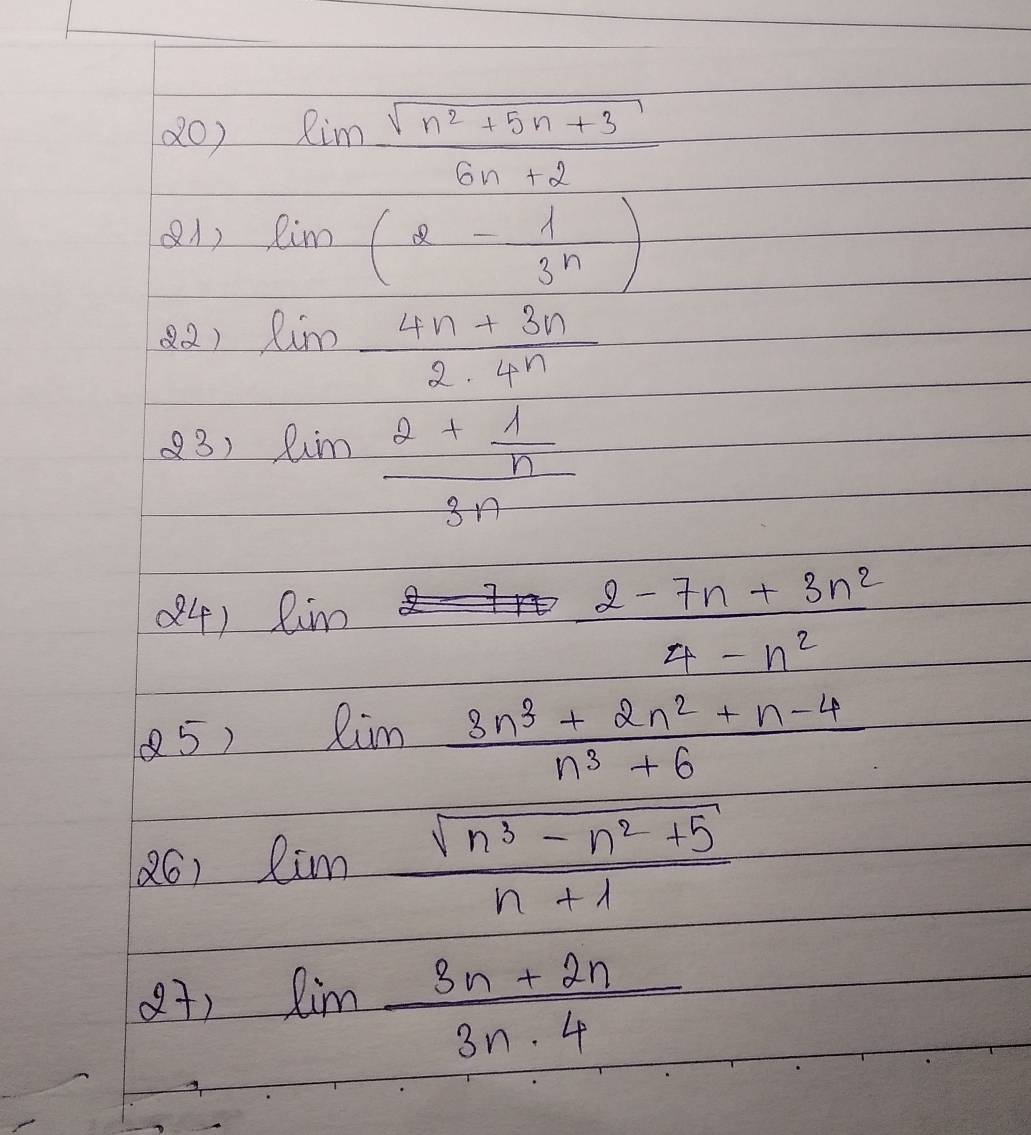 20) lim √(n² + 5n + 3) / (6n + 2)
21) lim (2 - 1/3ⁿ)
22) lim (4n + 3n) / (2 . 4ⁿ)
23) lim (2 + 1/n) / 3n
24) lim (2 - 7n + 3n²) / (4 - n²)
25) lim (3n³ + 2n² + n - 4) / (n³ + 6)
26) lim √(n³ - n² + 5) / (n + 1)
27) lim (3n + 2n) / (3n . 4)